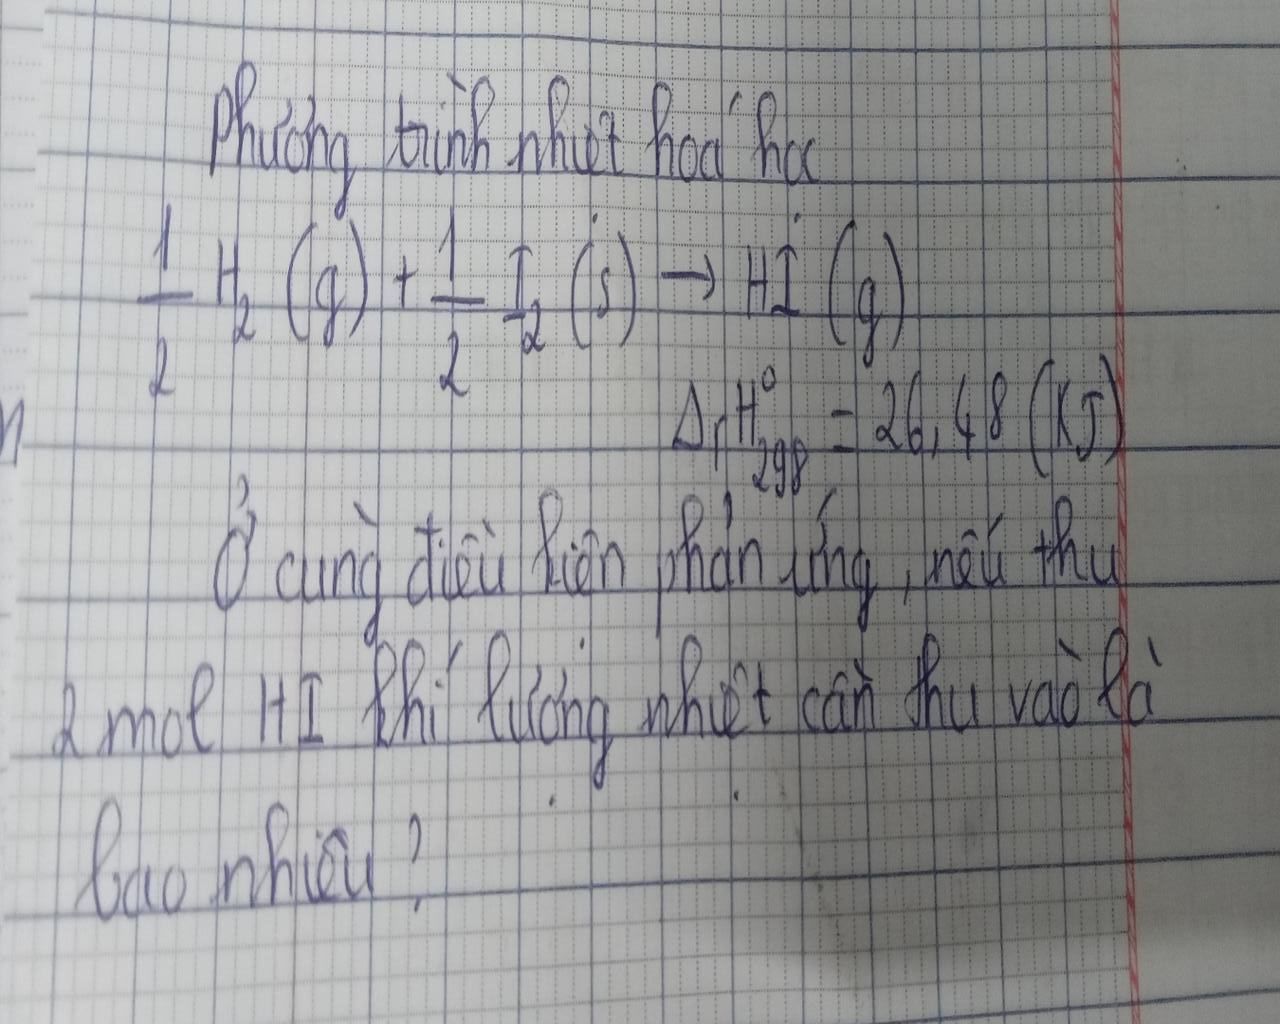 Phương trình nhiệt hoá học
1/2 H₂ (g) + 1/2 I₂ (s) → HI (g)
ΔrH⁰₂₉₈ = 26,48 (KJ)
Ở cùng điều kiện phản ứng, nếu thu
2 mol HI khí lượng nhiệt cần thu vào là
bao nhiêu?